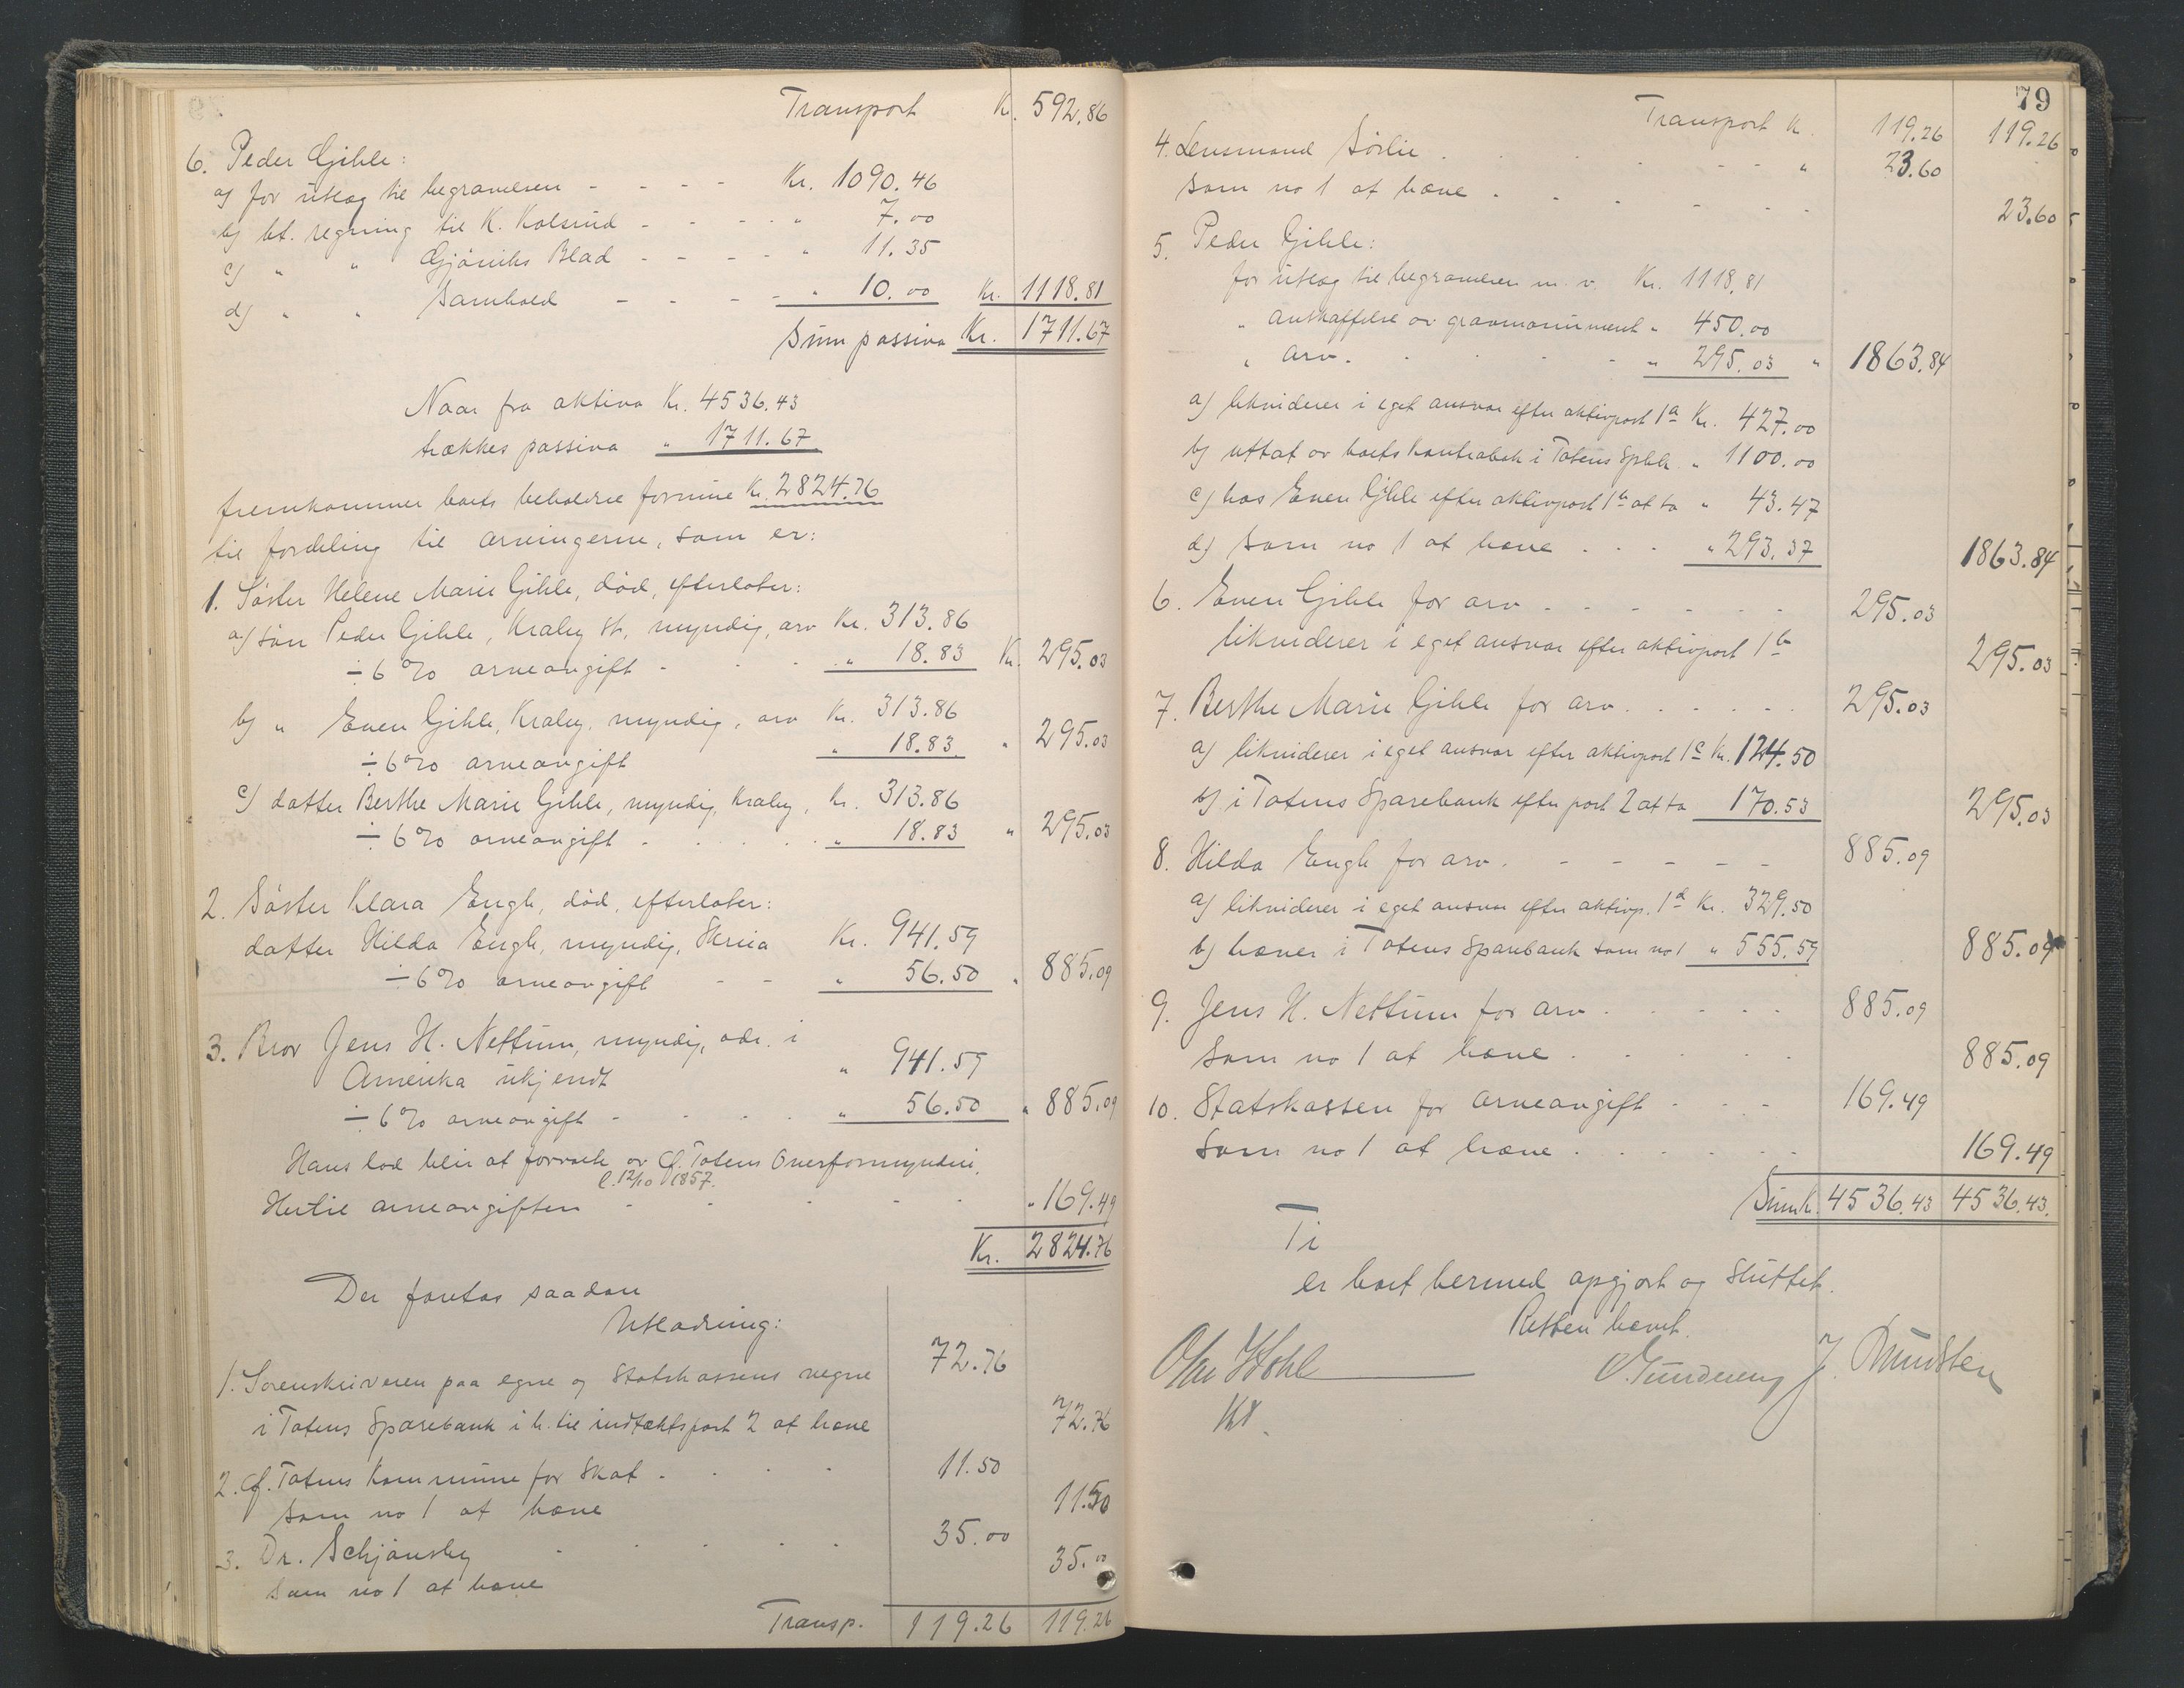 Transport Kr. 592.86
6. Peder Gihle:
a) for utlæg til begravelsen - - - - Kr. 1090.46
b) bt. regning til K. Kolsrud - - - - " 7.00
c) " " Gjøviks Blad - - - - " 11.35
d) " " Samhold - - - - " 10.00 Kr. 1118.81
Sum passiva Kr. 1711.67
Naar fra aktiva Kr. 4536.43
trækkes passiva " 1711.67
fremkommer boets beholdne formue Kr. 2824.76
til fordeling til arvingerne, som er:
1. Søster Helene Marie Gihle, död, efterlater:
a) sön Peder Gihle, Kraby st., myndig, arv Kr. 313.86
÷ 6 % arveavgift - . . " 18.83 Kr. 295.03
b) " Even Gihle, Kraby, myndig, arv Kr. 313.86
÷ 6 % arveavgift " 18.83 " 295.03
c) datter Berthe Marie Gihle, myndig, Kraby, Kr. 313.86
÷ 6 % arveavgift . . . . . " 18.83 " 295.03
2. Søster Klara Engh, död, efterlater:
datter Hilda Engh, myndig, Skreia Kr. 941.59
÷ 6 % arveavgift - - " 56.50 " 885.09
3. Bror Jens H. Nettum, myndig, adr. i
Amerika ukjendt " 941.59
÷ 6 % arveavgift - . . . " 56.50 " 885.09
Hans lod blir at forvalte av Ø. Totens Overformynderi,
l. 12/10 1857.
Hertil arveavgiften - - - - " 169.49
Kr. 2824.76
Der foretas saadan
Utlodning:
1. Sorenskriveren paa egne og Statskassens vegne 72.76
i Totens Sparebank i h. til indtægtspost 2 at hæve 72.76
2. Ø. Totens kommune for skat . . . . 11.50
som no 1 at hæve 11.50
3. Dr. Schjønsby . . . . . 35.00
som no 1 at hæve 35.00
Transp. 119.26 119.26
79
Transport Kr. 119.26 119.26
4. Lensmand Sörlie . . . . - - - " 23.60
som no 1 at hæve . . . . . . 23.60
5. Peder Gihle:
for utlæg til begravelsen m. v. Kr. 1118.81
" anskaffelse av gravmonument " 450.00
" arv . . . . . " 295.03 " 1863.84
a) likviderer i eget ansvar efter aktivpost 1a Kr. 427.00
b) uttat av boets kontrabok i Totens Spbk. " 1100.00
c) hos Even Gihle efter aktivpost 1b at ta " 43.47
d) som no 1 at hæve . . . " 293.37
1863.84
6. Even Gihle for arv - - - - - - 295.03
likviderer i eget ansvar efter aktivpost 1b
295.03
7. Berthe Marie Gihle for arv . . . . . . 295.03
a) likviderer i eget ansvar efter aktivpost 1c Kr. 124.50
b) i Totens Sparebank efter post 2 at ta 170.53 295.03
8. Hilda Engh for arv . - - - - - 885.09
a) likviderer i eget ansvar efter aktivp. 1d Kr. 329.50
b) hæver i Totens Sparebank som no 1 " 555.59 885.09
9. Jens H. Nettum for arv . . . . . 885.09
som no 1 at hæve . . . . . 885.09
10. Statskassen for arveavgift - - - 169.49
som no 1 at hæve . . . . . . 169.49
Sum kr. 4536.43 4536.43.
Ti
er boet hermed opgjort og sluttet.
Retten hævet.